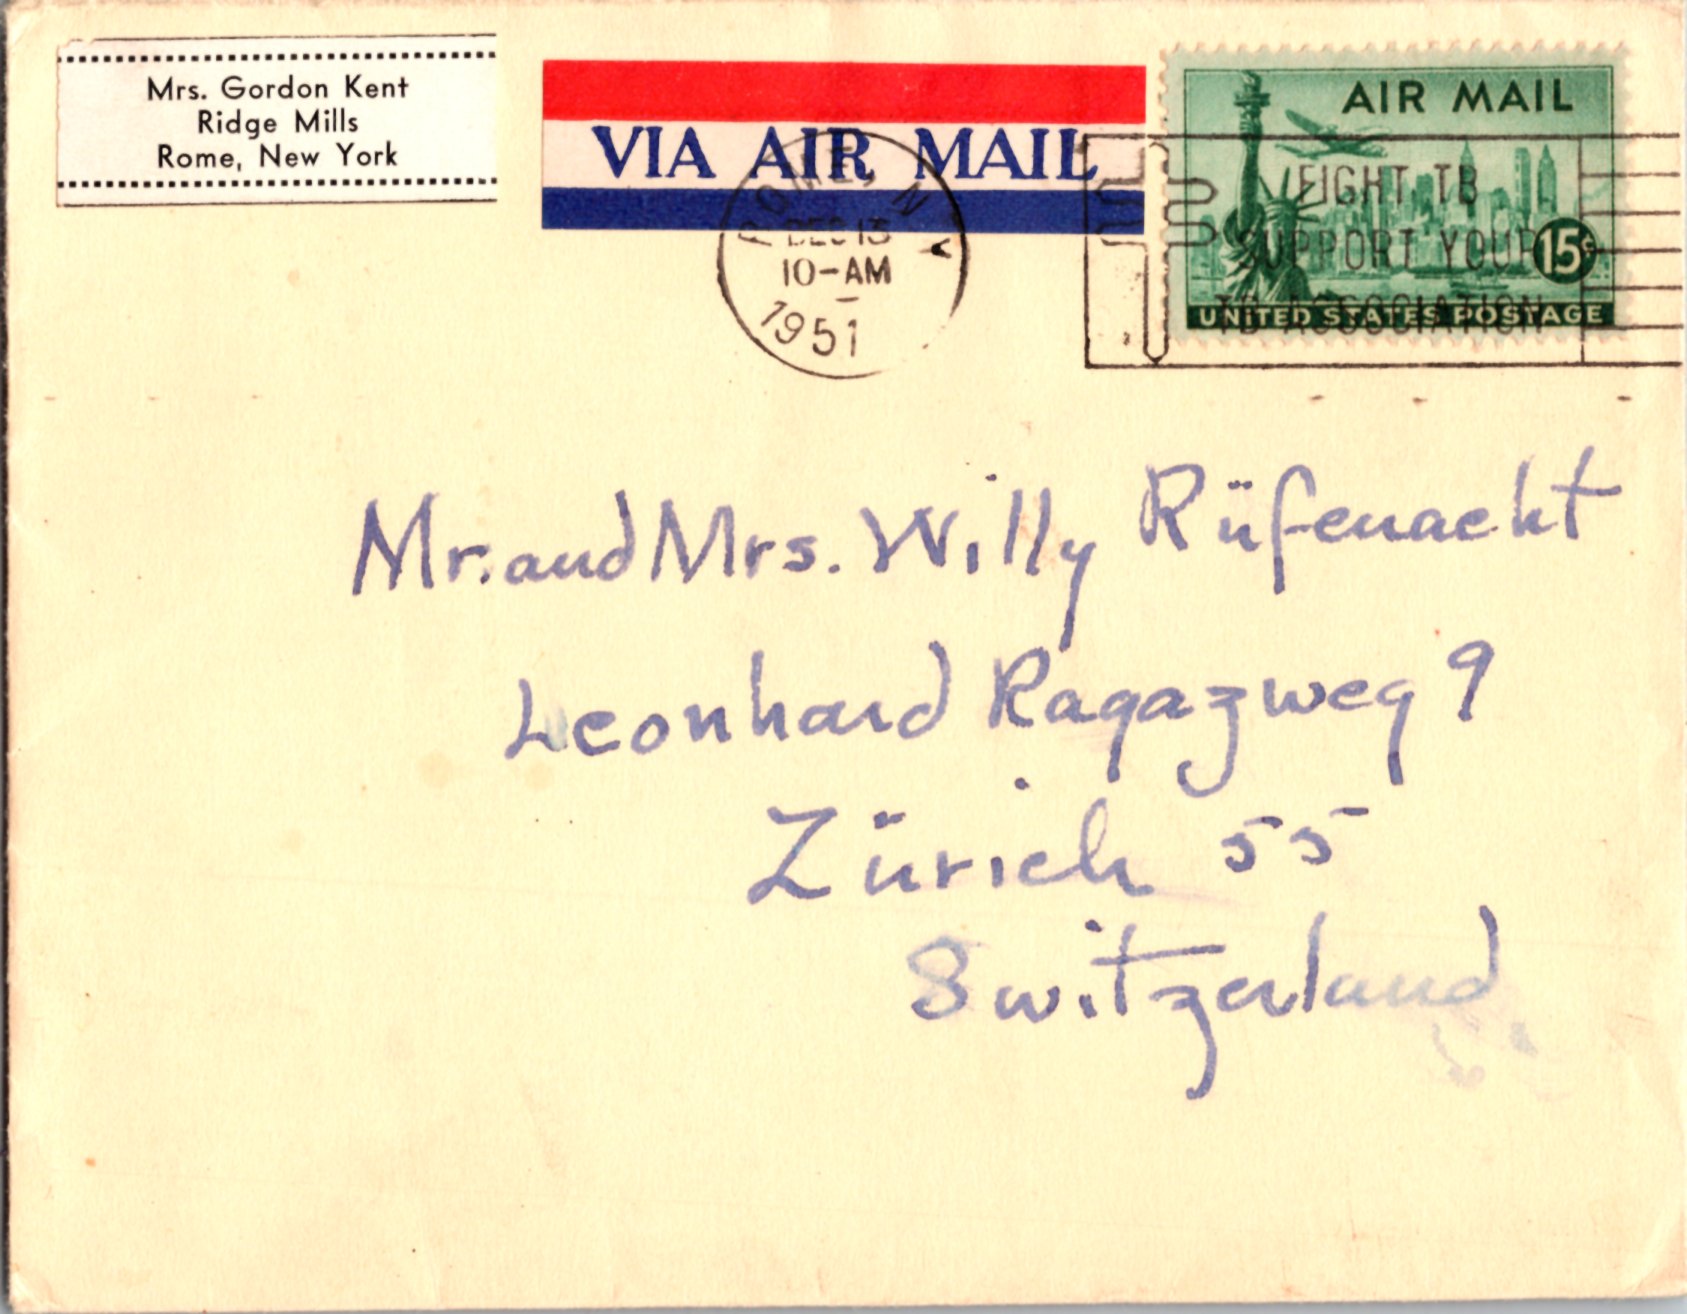 Mrs. Gordon Kent
Ridge Mills
Rome, New York
VIA AIR MAIL
ROME, N Y
DEC 13
10-AM
1951
AIR MAIL
15¢
UNITED STATES POSTAGE
FIGHT TB
SUPPORT YOUR
TB ASSOCIATION
Mr. and Mrs. Willy Rüfenacht
Leonhard Ragazweg 9
Zürich 55
Switzerland